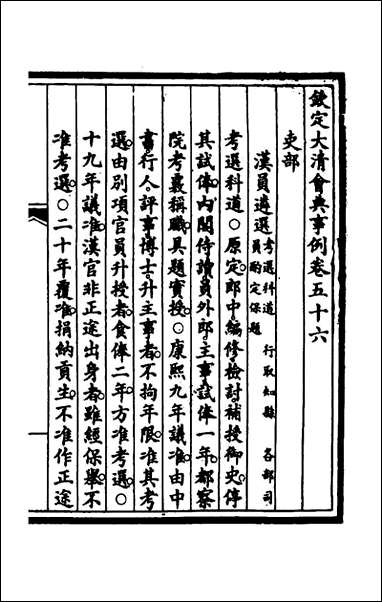 欽定大清會典事例卷五十六
吏部
漢員遴選考選科道 行取知縣 各部司員酌定保題
考選科道○原定郎中編修檢討補授御史停
其試俸內閣侍讀員外郎主事試俸一年都察
院考覈稱職具題實授○康熙九年議准由中
書行人評事博士升主事者不拘年限准其考
選由別項官員升授者食俸二年方准考選○
十九年議准漢官非正途出身者雖經保舉不
准考選○二十年覆准捐納貢生不准作正途